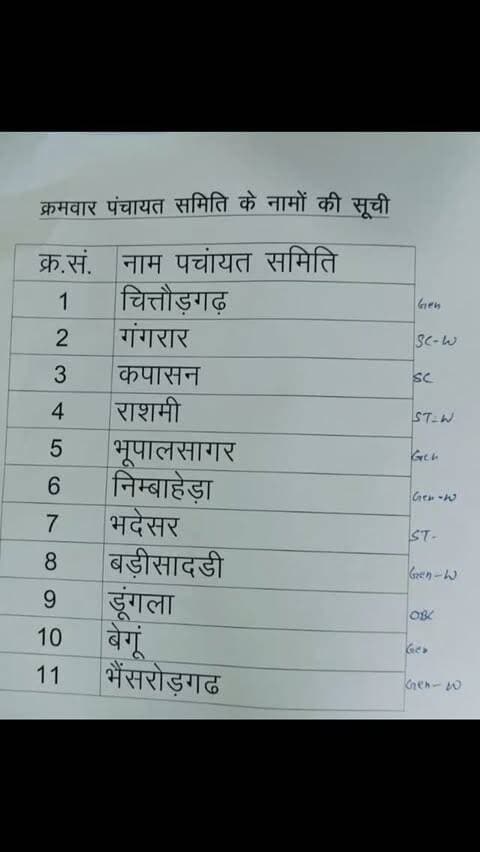 क्रमवार पंचायत समिति के नामों की सूची
क्र.सं. नाम पचांयत समिति
1 चित्तौड़गढ़ Gen
2 गंगरार SC-W
3 कपासन SC
4 राशमी ST-W
5 भूपालसागर Gen
6 निम्बाहेड़ा Gen-W
7 भदेसर ST-
8 बड़ीसादडी Gen-W
9 डूंगला OBC
10 बेगूं Gen
11 भैंसरोड़गढ Gen-W